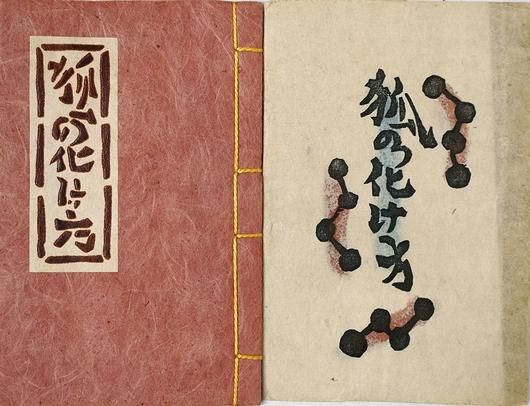 狐の化け方
狐の化け方